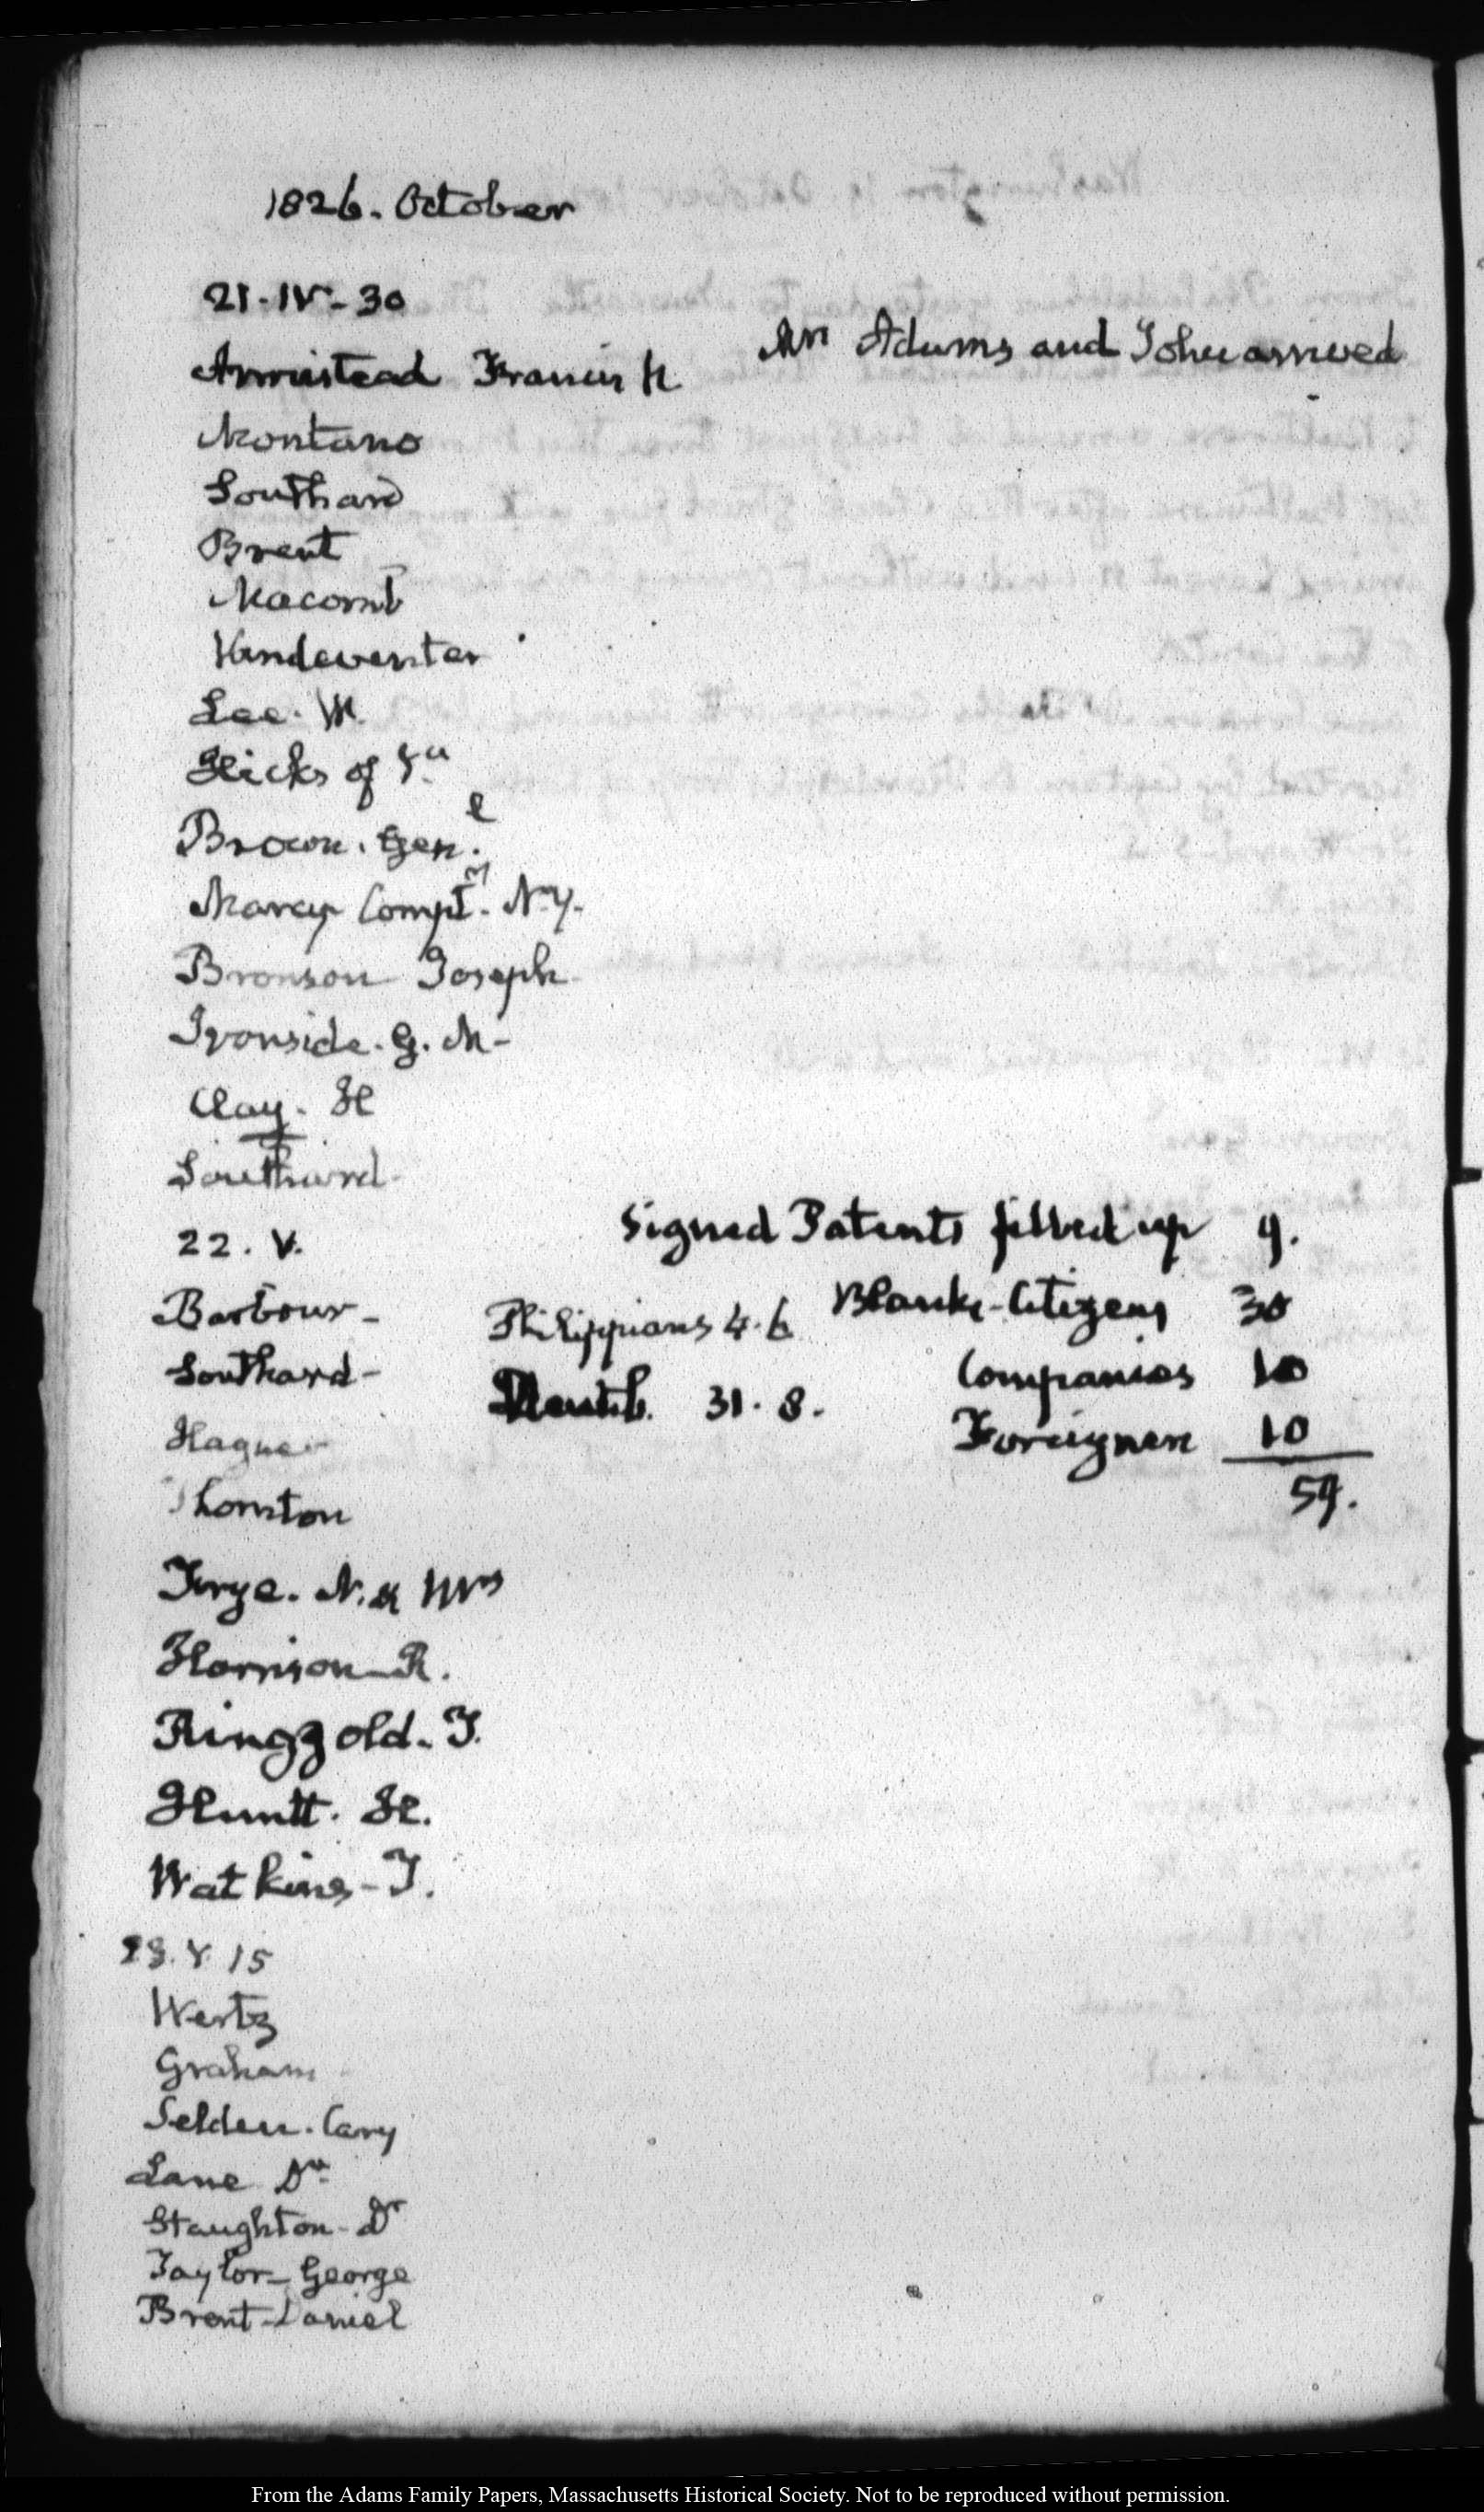 1826. October
21. IV. 30
Mrs Adams and John arrived
Armistead Francis H
Montano
Southard
Brent
Macomb
Vandeventer
Lee. W.
Hicks of
Brown. Genl.
Marcy Comptr. N.Y.
Bronson Joseph
Ironside. G. M-
Clay. H
Southard-
22. V.
Signed Patents filled up 9.
Barbour-
Philippians 4. 6
Blanks-Citizens 30
Southard-
31. 8.
Companies 10
Hague-
Foreigners 10
59.
Thornton
Frye. N. & Mrs
Harrison-R.
Ringgold. T.
Huntt. H.
Watkins-T.
23. V. 15
Wertz
Graham
Selden. Cary
Lane Dr
Staughton-Dr
Taylor-George
Brent-Daniel
From the Adams Family Papers, Massachusetts Historical Society. Not to be reproduced without permission.